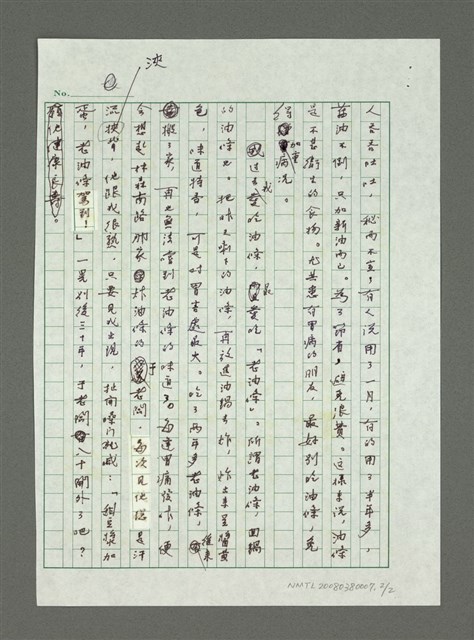 No.
浹
人吞吞吐吐,秘而不宣,有人說用了一月,有的用了半年多,
舊油不倒,只加新油而已。為了節省,避免浪費。這樣來說,油條
是不甚衛生的食物。尤其患有胃病的朋友,最好別吃油條,免
得加重病況。
我過去愛吃油條,最愛吃「老油條」。所謂老油條,回鍋
的油條也。把昨天剩下的油條,再放進油鍋去炸,炸出來呈醬黃
色,味道特香,可是對胃害處最大。吃了兩年多老油條,後來
搬了家,再也無法嘗到老油條的味道了。每逢胃痛發作,便
會想起林森南路那家炸油條的于老闆,每次見他總是汗
流浹背,他跟我很熟,只要見我出現,扯開嗓門就喊:「甜豆漿加
蛋,老油條駕到!」一晃別後三十年,于老闆八十開外了吧?
願他健康長壽。
NMTL20080380007,2/2